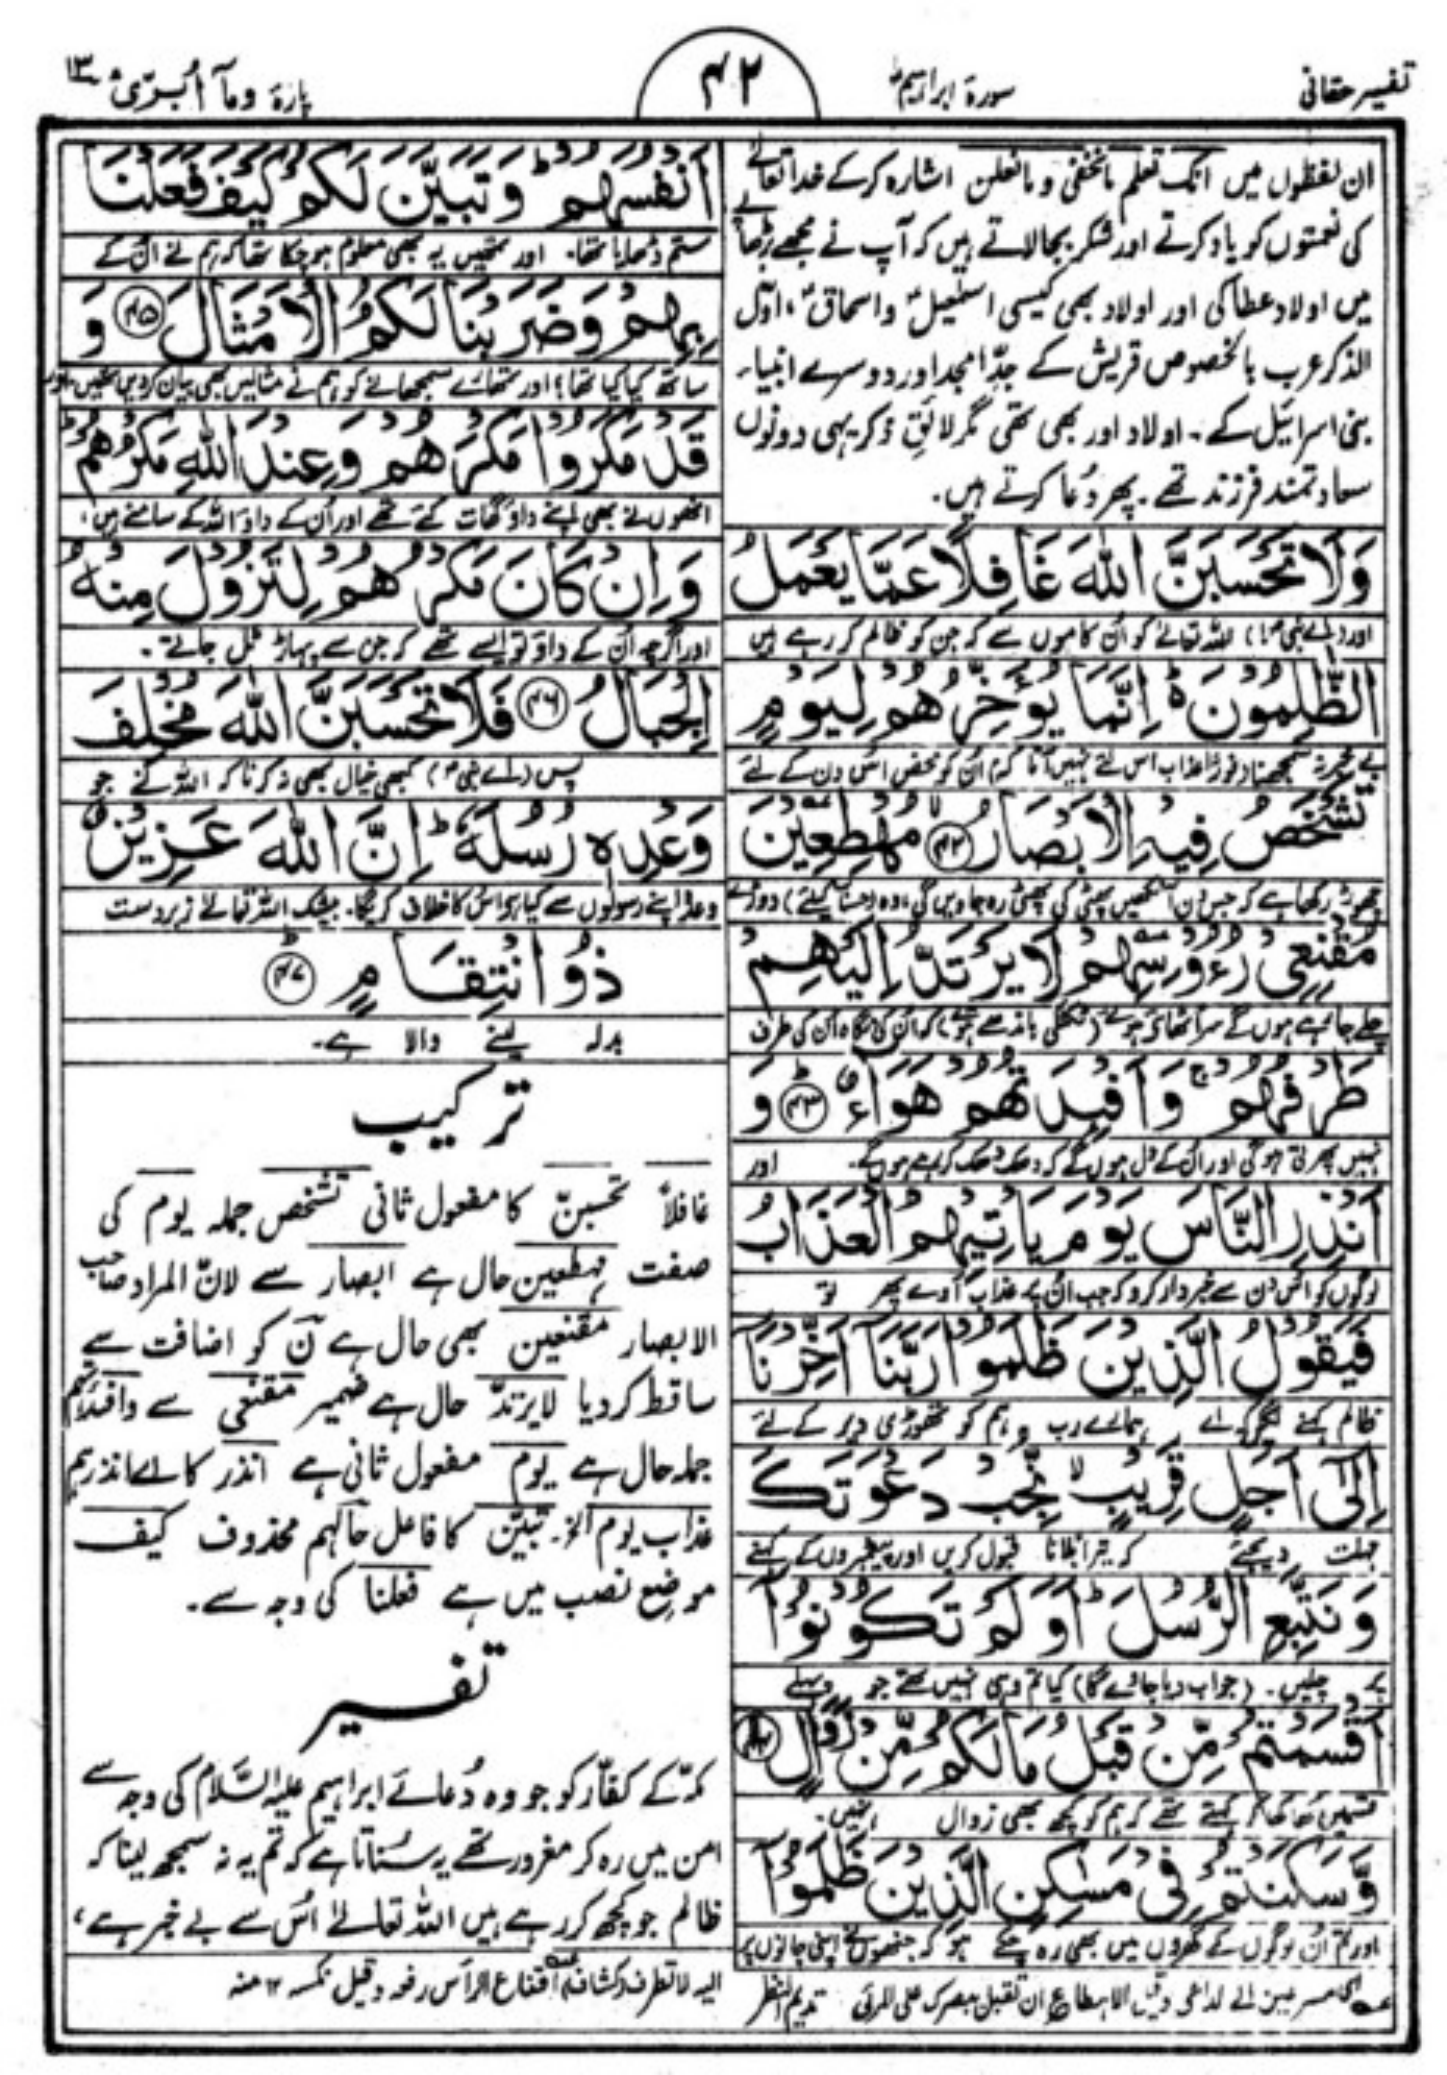 تفسیر حقانی
سورۃ ابراہیم
۴۲
پارہ وما أبرّئ ۱۳
ان لفظوں میں انک تعلم ما نخفی وما نعلن اشارہ کر کے خدا تعالٰے
کی نعمتوں کو یاد کرتے اور شکر بجا لاتے ہیں کہ آپ نے مجھے بڑھاپے
میں اولاد عطا کی اور اولاد بھی کیسی اسمٰعیل و اسحاق، اوّل
الذکر عرب بالخصوص قریش کے جدّ امجد اور دوسرے انبیاء
بنی اسرائیل کے۔ اولاد اور بھی تھی مگر لائق ذکر یہی دونوں
سعادتمند فرزند تھے۔ پھر دُعا کرتے ہیں۔
وَلَا تَحْسَبَنَّ اللّٰهَ غَافِلًا عَمَّا يَعْمَلُ
اور (اے نبی!) اللہ تعالےٰ کو اُن کاموں سے کہ جن کو ظالم کر رہے ہیں
الظّٰلِمُوْنَ ؕ اِنَّمَا يُؤَخِّرُهُمْ لِيَوْمٍ
بے خبر نہ سمجھنا (فوراً عذاب اس لئے نہیں آتا کہ) ان کو محض اس دن کے لئے
تَشْخَصُ فِيْهِ الْاَبْصَارُ ۴۲ مُهْطِعِيْنَ
چھوڑ رکھا ہے کہ جس دن آنکھیں پھٹی کی پھٹی رہ جاویں گی، وہ دوڑے
مُقْنِعِيْ رُءُوْسِهِمْ لَا يَرْتَدُّ اِلَيْهِمْ
چلے جا رہے ہوں گے سر اٹھائے ہوئے (ٹکٹکی باندھے ہوئے) کہ ان کی نگاہ ان کی طرف
طَرْفُهُمْ ۚ وَاَفْـِٕدَتُهُمْ هَوَآءٌ ۴۳ وَ
نہیں پھرتی ہوگی اور ان کے دل ہوں گے کہ دھک دھک کر رہے ہوں گے۔ اور
اَنْذِرِ النَّاسَ يَوْمَ يَاْتِيْهِمُ الْعَذَابُ
لوگوں کو اس دن سے خبردار کر دو کہ جب ان پر عذاب آوے پھر تو
فَيَقُوْلُ الَّذِيْنَ ظَلَمُوْا رَبَّنَآ اَخِّرْنَآ
ظالم کہنے لگیں گے اے ہمارے رب ہم کو تھوڑی دیر کے لئے
اِلٰٓى اَجَلٍ قَرِيْبٍ ۙ نُّجِبْ دَعْوَتَكَ
مہلت دیجئے کہ تیرا بلانا قبول کریں اور پیغمبروں کے کہنے
وَنَتَّبِعِ الرُّسُلَ ؕ اَوَلَمْ تَكُوْنُوْٓا
پر چلیں۔ (جواب دیا جائے گا) کیا تم وہی نہیں تھے جو پہلے
اَقْسَمْتُمْ مِّنْ قَبْلُ مَا لَكُمْ مِّنْ زَوَالٍ ۴۴
قسمیں کھا کھا کر کہتے تھے کہ ہم کو کچھ بھی زوال نہیں۔
وَّسَكَنْتُمْ فِيْ مَسٰكِنِ الَّذِيْنَ ظَلَمُوْٓا
اور تم ان لوگوں کے گھروں میں بھی رہ چکے ہو کہ جنھوں نے اپنی جانوں پر
ای مسرعین الی الداعی وقیل الاہطاع ان تقبل ببصرک علی المرئی تدیم النظر
اَنْفُسَهُمْ ؕ وَتَبَيَّنَ لَكُمْ كَيْفَ فَعَلْنَا
ستم ڈھایا تھا۔ اور تمھیں یہ بھی معلوم ہو چکا تھا کہ ہم نے ان کے
بِهِمْ وَضَرَبْنَا لَكُمُ الْاَمْثَالَ ۴۵ وَ
ساتھ کیا کیا تھا؟ اور تمھارے سمجھانے کو ہم نے مثالیں بھی بیان کر دیں تھیں اور
قَدْ مَكَرُوْا مَكْرَهُمْ وَعِنْدَ اللّٰهِ مَكْرُهُمْ ؕ
انھوں نے بھی اپنے داؤ گھات کئے تھے اور ان کے داؤ اللہ کے سامنے ہیں،
وَاِنْ كَانَ مَكْرُهُمْ لِتَزُوْلَ مِنْهُ
اور اگرچہ ان کے داؤ تو ایسے تھے کہ جن سے پہاڑ ٹل جاتے۔
الْجِبَالُ ۴۶ فَلَا تَحْسَبَنَّ اللّٰهَ مُخْلِفَ
پس (اے نبی) کبھی خیال بھی نہ کرنا کہ اللہ نے جو
وَعْدِهٖ رُسُلَهٗ ؕ اِنَّ اللّٰهَ عَزِيْزٌ
وعدہ اپنے رسولوں سے کیا ہو اس کا خلاف کریگا۔ بیشک اللہ تعالےٰ زبردست
ذُو انْتِقَامٍ ۴۷
بدلہ لینے والا ہے۔
ترکیب
غافلاً تحسبنّ کا مفعول ثانی تشخص جملہ یوم کی
صفت مہطعین حال ہے ابصار سے لانّ المراد صاحب
الابصار مقنعین بھی حال ہے نؔ کو اضافت سے
ساقط کر دیا لا یرتدّ حال ہے ضمیر مقنعی سے وافئدتہم
جملہ حال ہے یوم مفعول ثانی ہے انذر کا اے انذرہم
عذاب یوم الخ۔ تبیّن کا فاعل حالہم محذوف کیف
موضع نصب میں ہے فعلنا کی وجہ سے۔
تفسیر
مکّہ کے کفّار کو جو وہ دُعائے ابراہیم علیہ السّلام کی وجہ سے
امن میں رہ کر مغرور تھے یہ سُناتا ہے کہ تم یہ نہ سمجھ لینا کہ
ظالم جو کچھ کر رہے ہیں اللہ تعالےٰ اُس سے بے خبر ہے،
الیہ لا تطرف (کشاف) اقناع الراس رفعہ وقیل نکسہ ۱۲ منہ